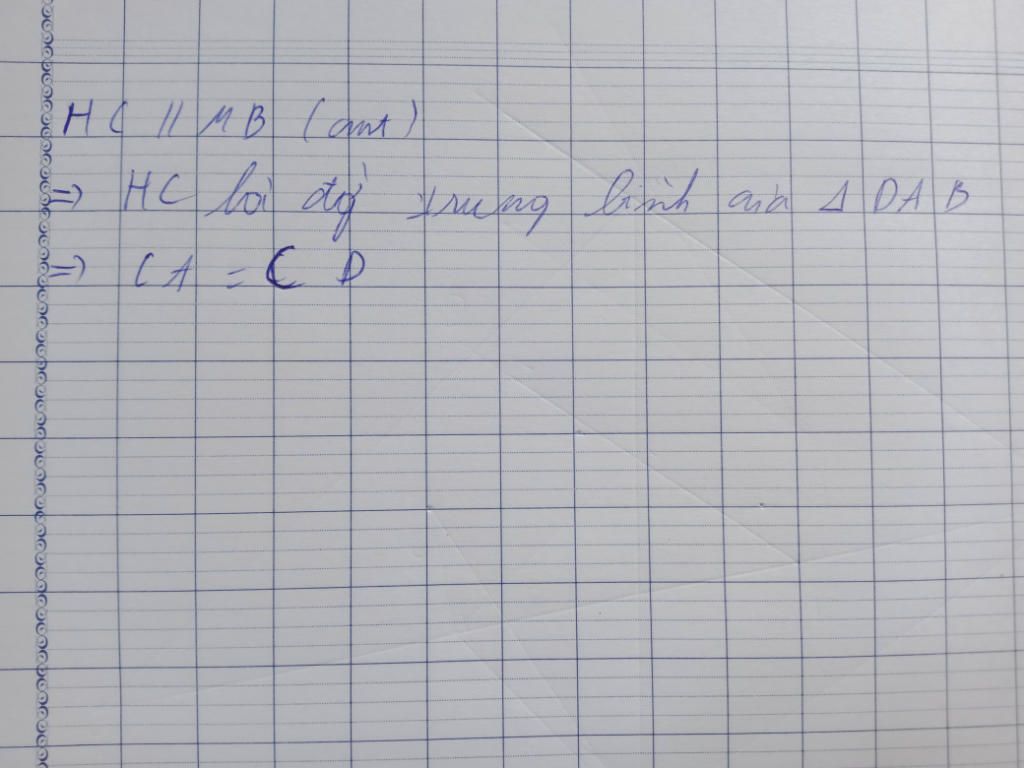 HC // MB (cmt)
=> HC là đg trung bình của Δ DAB
=> CA = CD